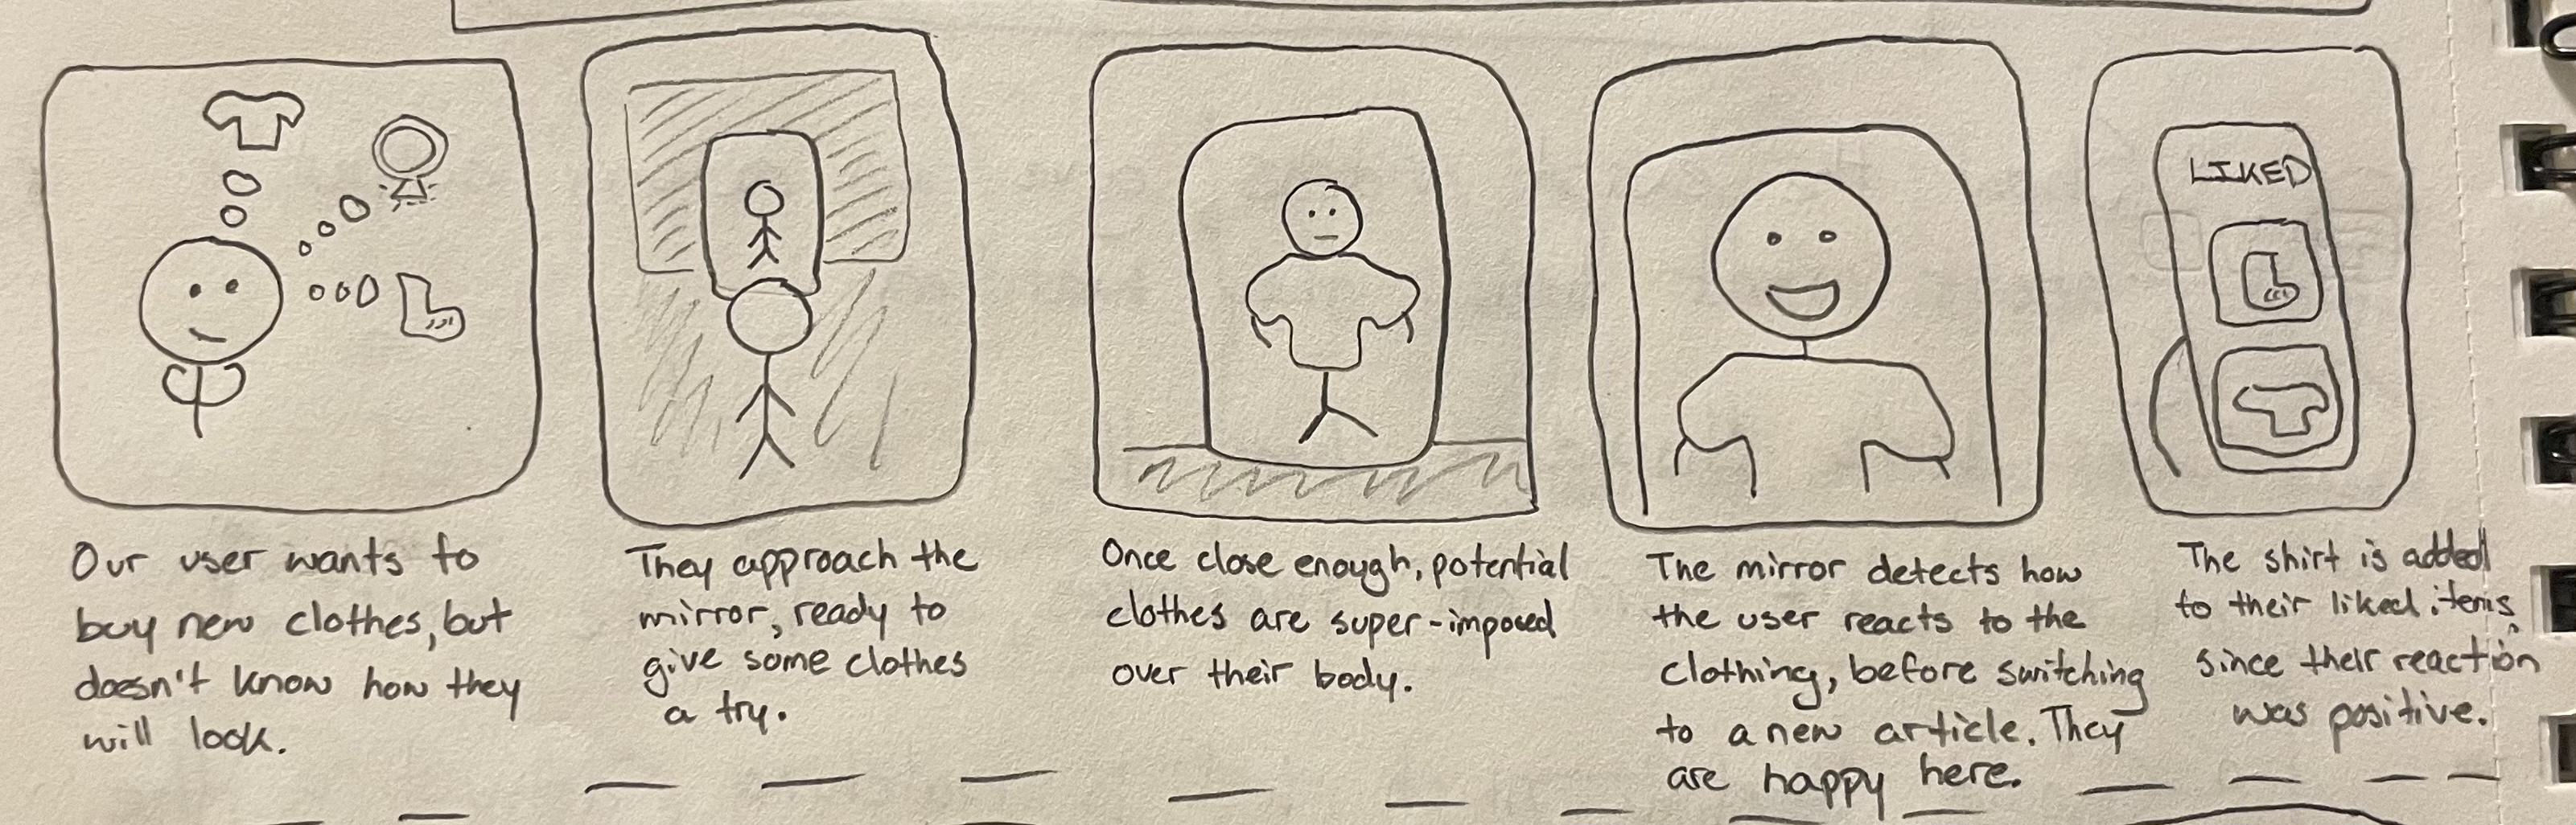 LIKED
Our user wants to
buy new clothes, but
doesn't know how they
will look.
They approach the
mirror, ready to
give some clothes
a try.
Once close enough, potential
clothes are super-imposed
over their body.
The mirror detects how
the user reacts to the
clothing, before switching
to a new article. They
are happy here.
The shirt is added
to their liked items,
since their reaction
was positive.